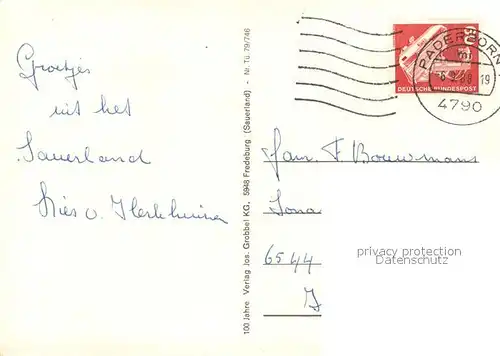 Groetjes
uit het
Sauerland
100 Jahre Verlag Jos. Grobbel KG, 5948 Fredeburg (Sauerland) - Nr. Tü 79/746
DEUTSCHE BUNDESPOST
PADERBORN
19
4790
Fam. F Bouwmans
6544
privacy protection
Datenschutz